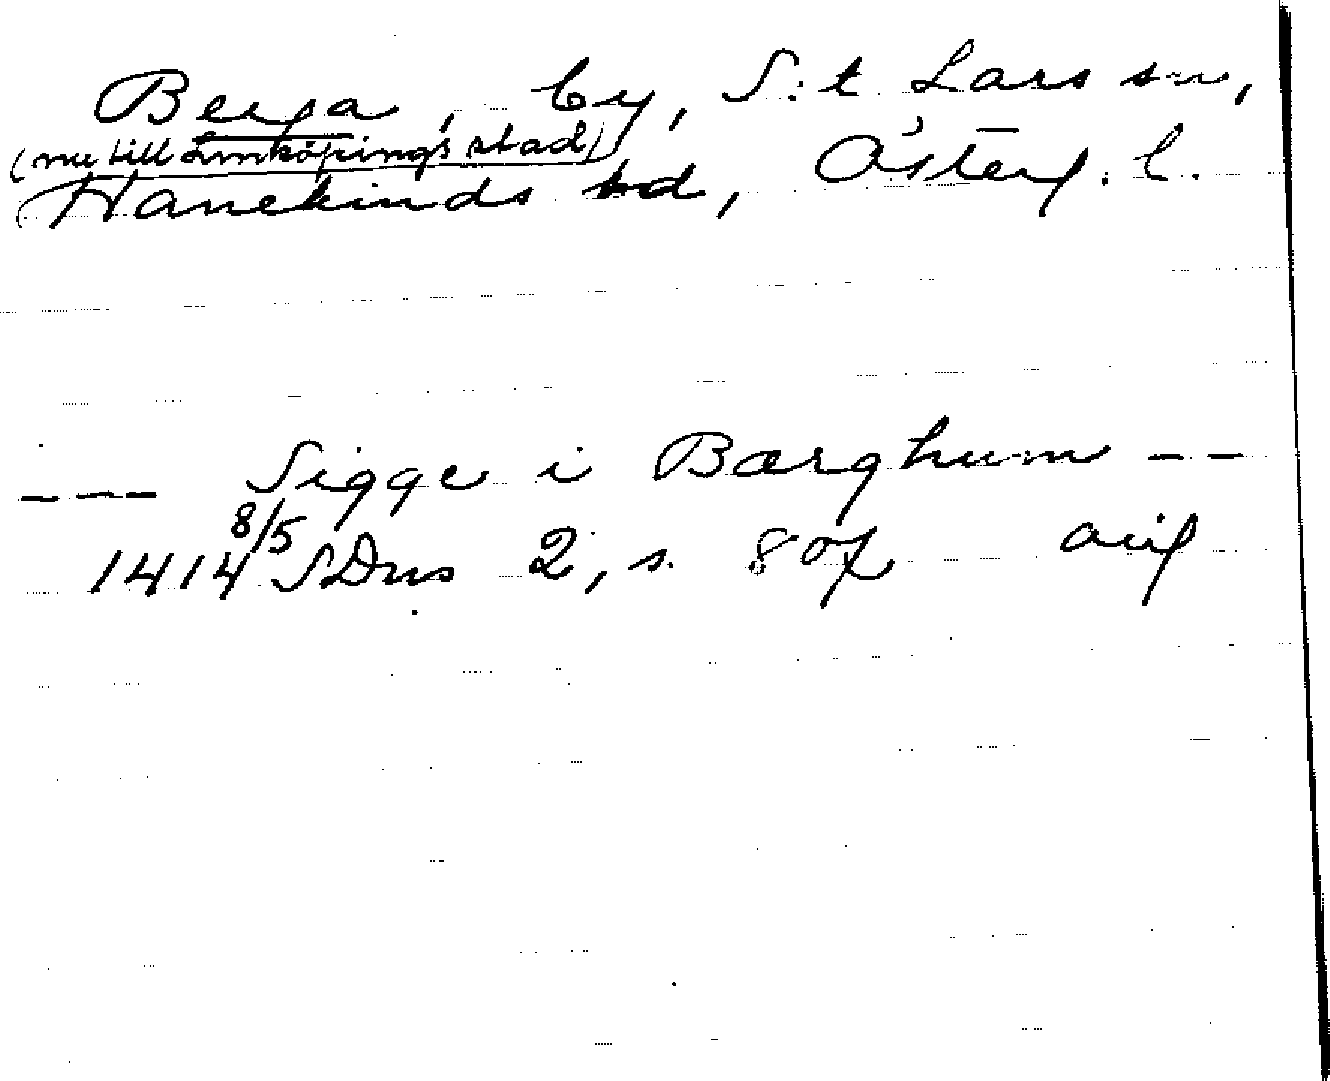 Berga, by, S:t Lars sn,
(nu till Linköpings stad)
Hanekinds hd, Österg. l.
--- Sigge i Bærghum --
1414 8/5 SDns 2, s. 807 avig